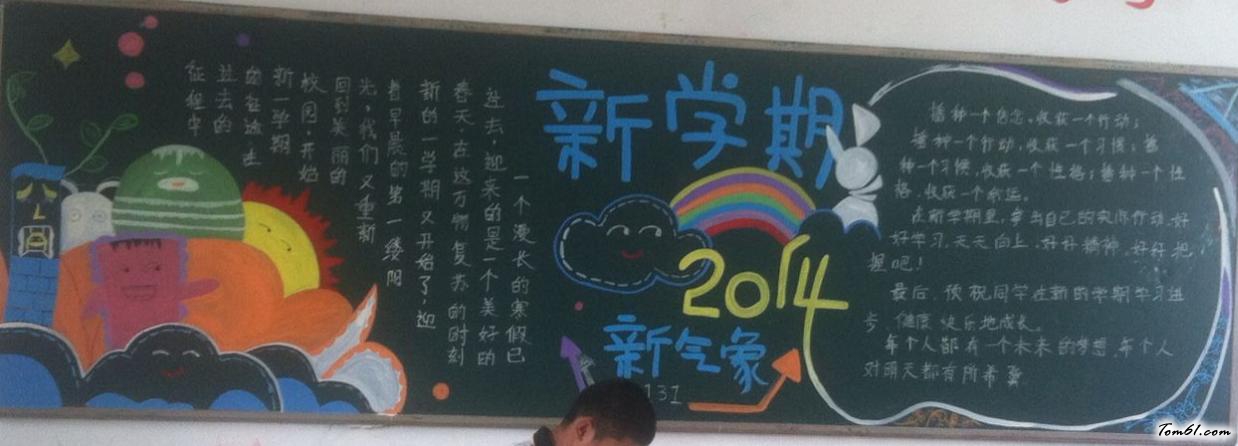 新学期
2014
新气象
131
一个漫长的寒假已
过去，迎来的是一个美好的
春天，在这万物复苏的时刻
新的一学期又开始了，迎
着早晨的第一缕阳
光，我们又重新
回到美丽的
校园，开始
新一学期
在这
去的
征程中
播种一个信念，收获一个行动；
播种一个行动，收获一个习惯；播
种一个习惯，收获一个性格；播种一个性
格，收获一个命运。
在新学期里，拿出自己的实际行动，好
好学习，天天向上，好好精神，好好把
握吧！
最后，预祝同学在新的学期学习进
步，健康快乐地成长。
每个人都有一个未来的梦想，每个人
对明天都有所希冀
Tom61.com